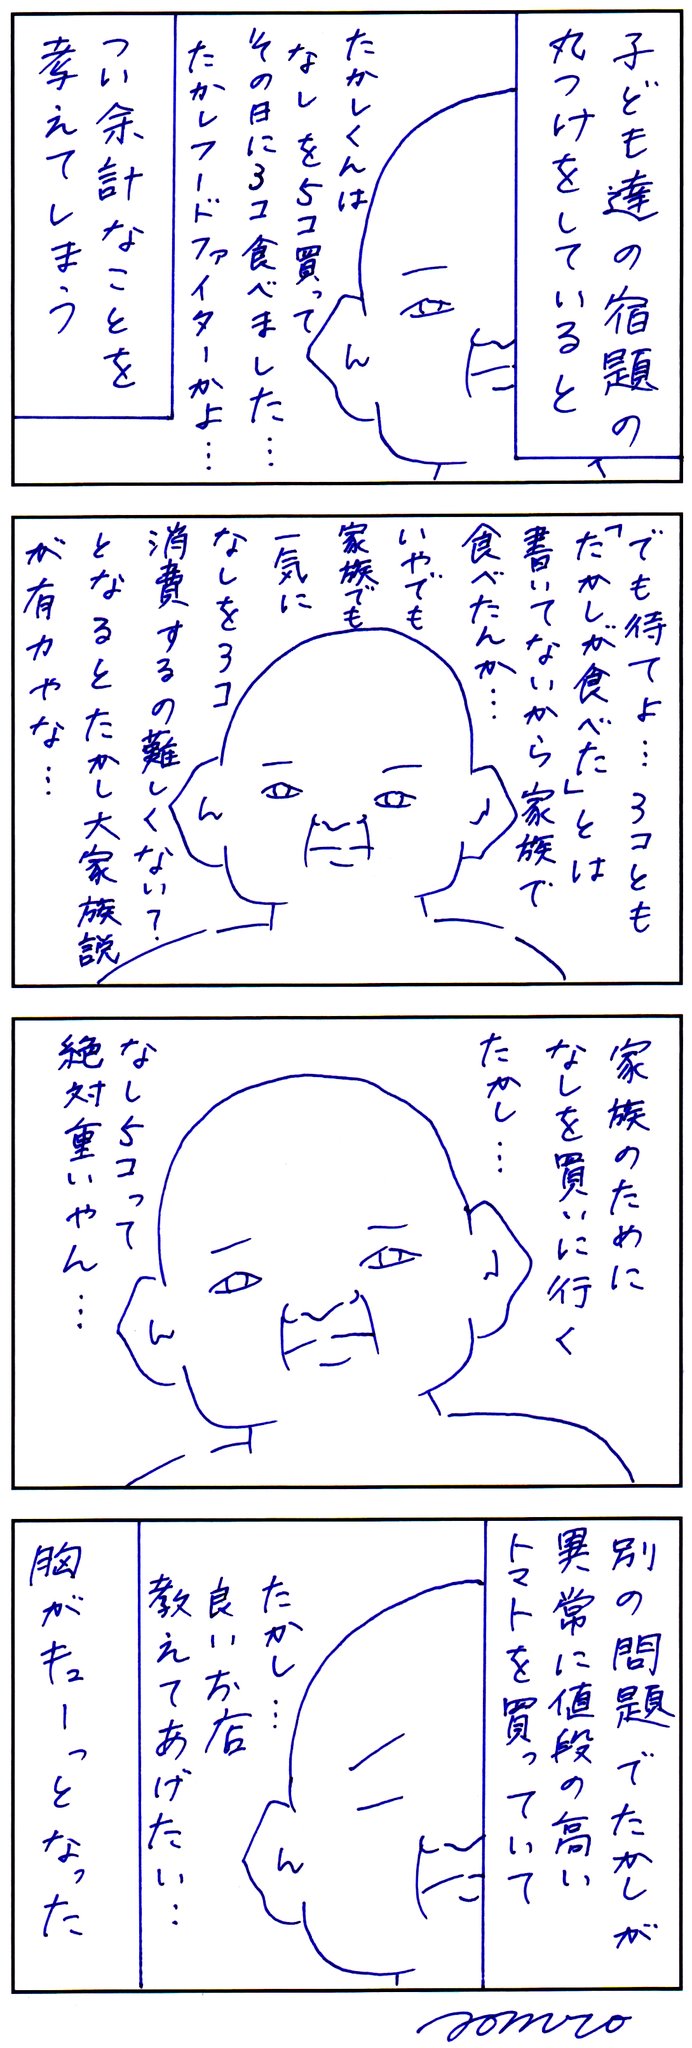 子ども達の宿題の
丸つけをしていると
たかしくんは
なしを5コ買って
その日に3コ食べました…
たかしフードファイターかよ…
つい余計なことを
考えてしまう
でも待てよ…3コとも
「たかしが食べた」とは
書いてないから家族で
食べたんか…
いやでも
家族でも
一気に
なしを3コ
消費するの難しくない？
となるとたかし大家族説
が有力やな…
家族のために
なしを買いに行く
たかし…
なし5コって
絶対重いやん…
別の問題でたかしが
異常に値段の高い
トマトを買っていて
たかし…
良いお店
教えてあげたい…
胸がキューっとなった